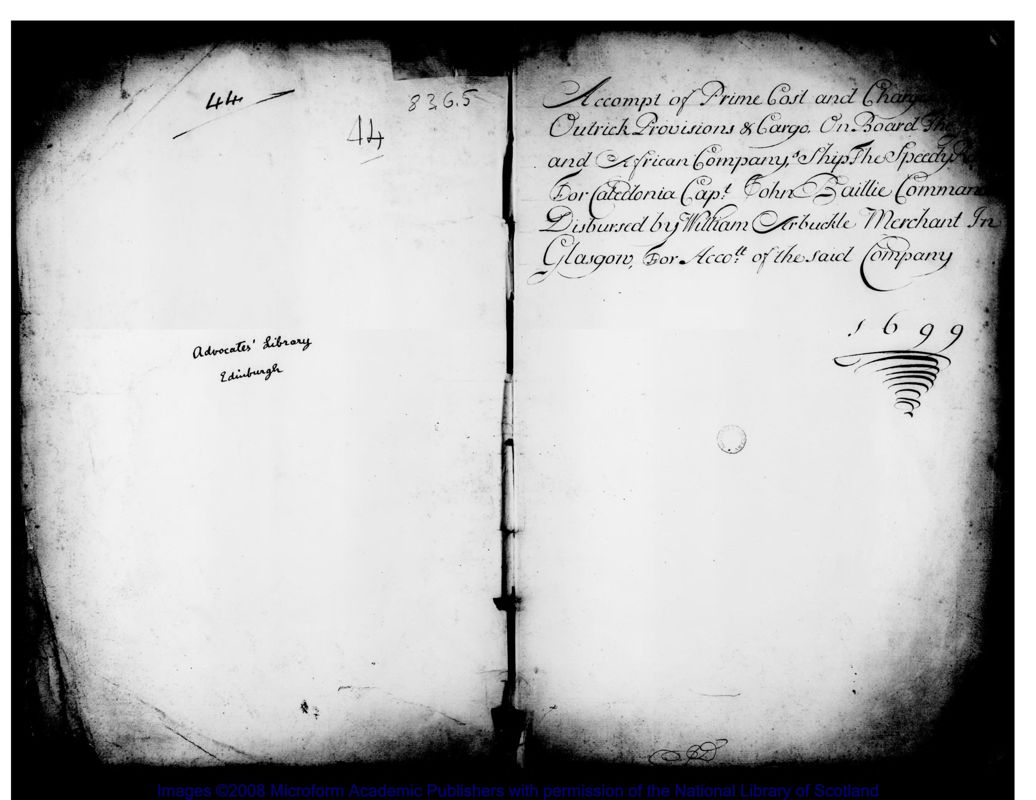 44
8 3.6.5
44
Advocates' Library
Edinburgh
Accompt of Prime Cost and
Outrick Provisions & Cargo, On Board
and African Company,s Ship The Speedy
For Caledonia Capt. John Baillie
Disbursed by William Arbuckle Merchant In
Glasgow, For Acco.tt of the said Company
1699
Images ©2008 Microform Academic Publishers with permission of the National Library of Scotland